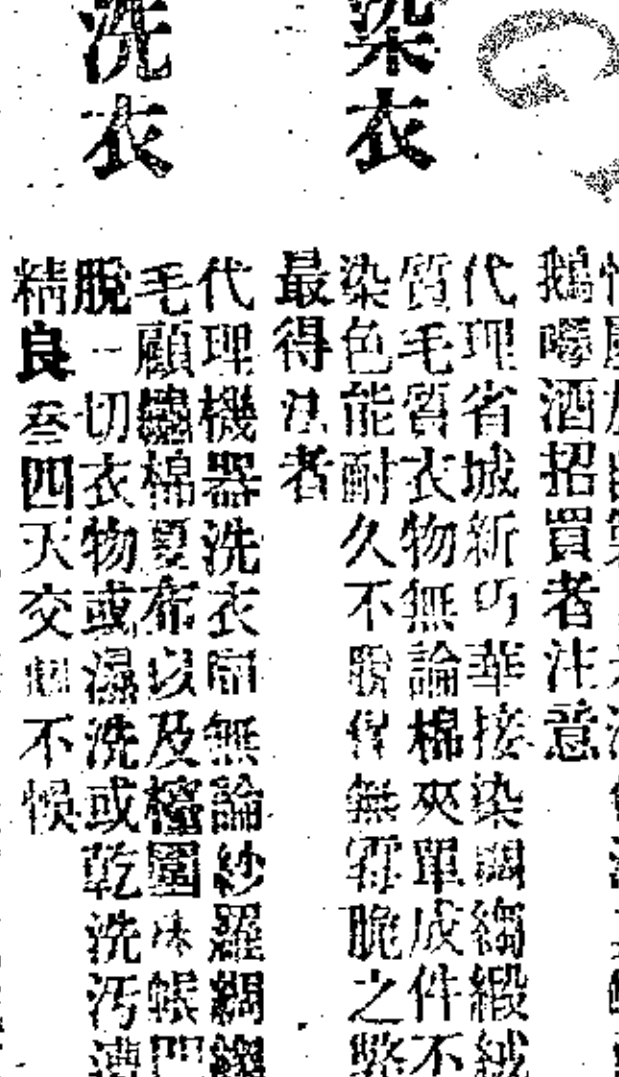 鵝嘜酒招買者注意
染衣
代理省城新巧華接染綢縐緞絨
質毛質衣物無論棉夾單成件不
染色能耐久不脫俾無霉脆之弊
最得法者
洗衣
代理機器洗衣局無論紗羅綢縐
毛顧繡棉夏布以及檯圍床帳門
脫一切衣物或濕洗或乾洗污漕
精良叁四天交回不悞